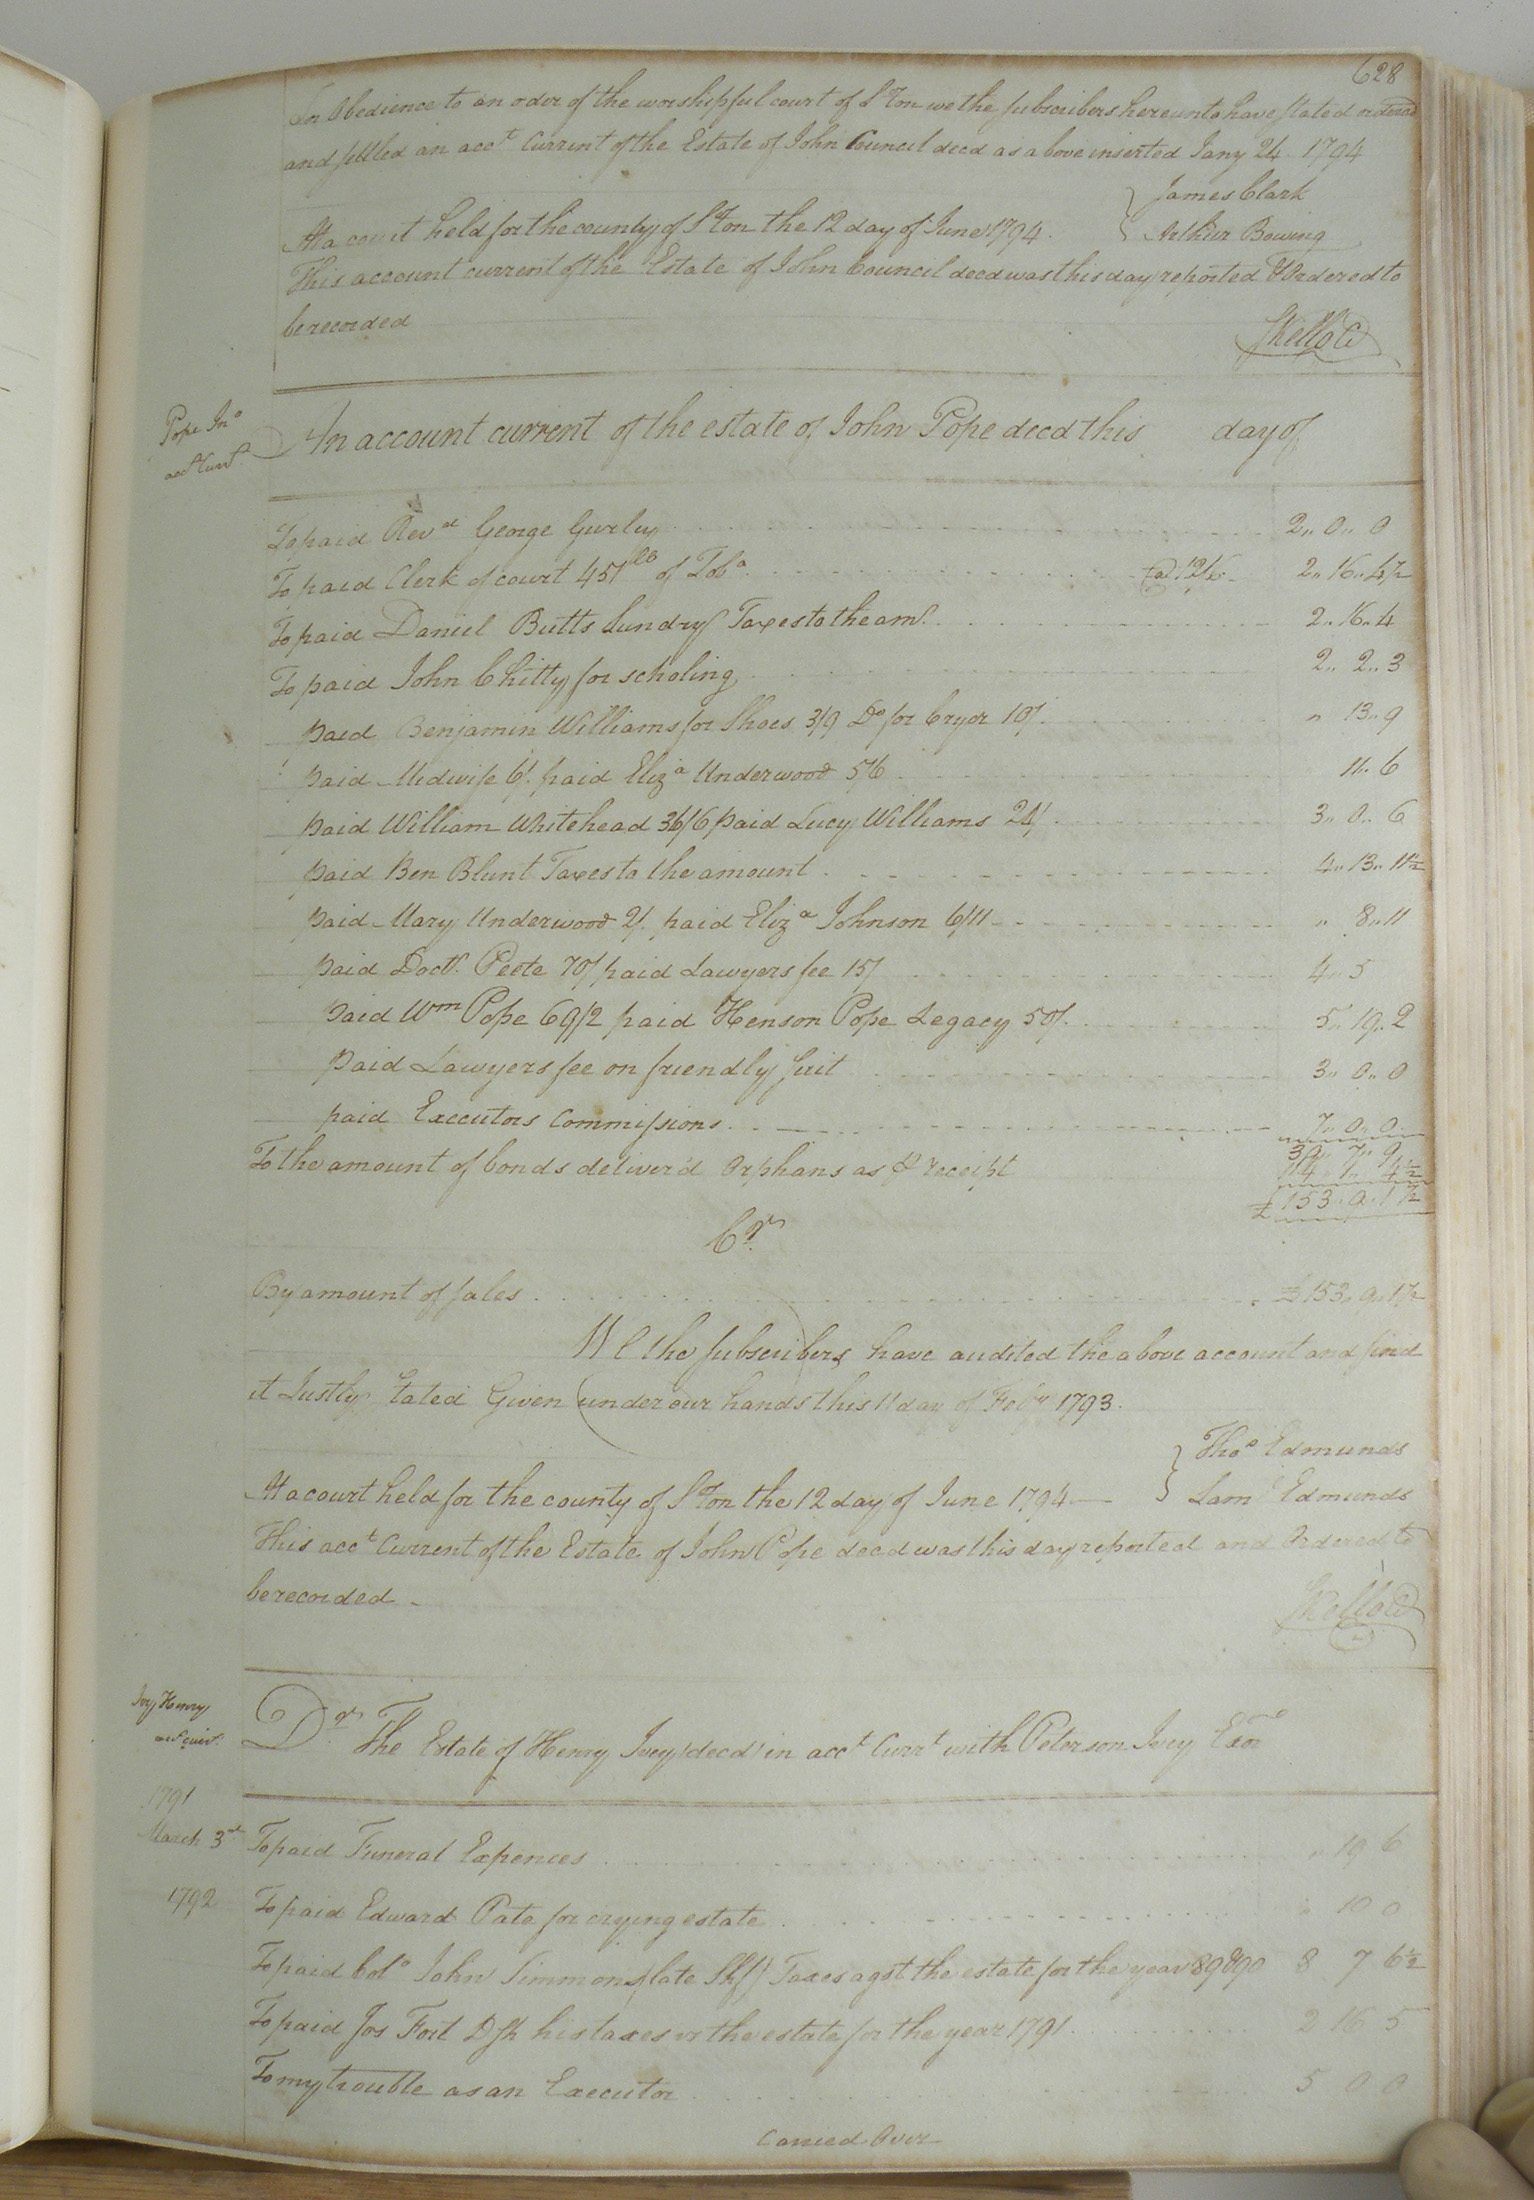 628
In Obedience to an oder of the worshipful court of S°Ton we the subscribers hereunto have stated
and settled an acct Current of the Estate of John Council decd as above inserted Jany 24 1794
James Clark
At a court held for the county of S°Ton the 12 day of June 1794. Arthur Bowing
This account current of the Estate of John Council decd was this day reported & Ordered to
be recorded
SKello CC
Pope Jno
acct Currt
An account current of the estate of John Pope decd this day of
To paid Revd George Gurley 2,, 0,, 0
To paid Clerk of court 451 lb of Toba @ 12/6 2,, 16,, 4½
To paid Daniel Butts Sundry Taxes to the amt. 2,, 16,, 4
To paid John Chitty for scholing 2,, 2,, 3
paid Benjamin Williams for Shoes 3/9 Do for Cryer 10/. ,, 13,, 9
paid Midwife 6/. paid Eliza Underwood 5/6 11,, 6
paid William Whitehead 36/6 paid Lucy Williams 24/. 3,, 0,, 6
paid Ben Blunt Taxes to the amount 4,, 13,, 11½
paid Mary Underwood 2/. paid Eliza Johnson 6/11 ,, 8,, 11
paid Doctr. Peete 70/ paid Lawyers fee 15/ 4,, 5
paid Wm Pope 69/2 paid Henson Pope Legacy 50/. 5,, 19,, 2
paid Lawyers fee on friendly suit 3,, 0,, 0
paid Executors Commissions 7,, 0,, 0
39,, 7,, 9
To the amount of bonds deliver'd Orphans as pr receipt 114 1,, 4½
£ 153,, 9,, 1½
Cr
By amount of sales £ 153,, 9,, 1½
We the subscribers have audited the above account and find
it Justly Stated Given under our hands this 11 day of Feby 1793.
Thos Edmunds
At a court held for the county of S°Ton the 12 day of June 1794 Sam Edmunds
This acct Current of the Estate of John Pope decd was this day reported and Ordered to
be recorded
SKello CC
Ivy Henry
acct curt.
Dr The Estate of Henry Ivey (decd) in acct Currt with Peterson Ivey Exor
1791
March 3rd To paid Funeral Expences ,, 19 6
1792 To paid Edward Pate for crying estate ,, 10 0
To paid Colo John Simmons (late Shff) Taxes agst the estate for the year 89 & 90 8 7 6½
To paid Jos Fort D Sh his taxes vs the estate for the year 1791. 2 16 5
To my trouble as an Executor 5 0 0
Carried Over